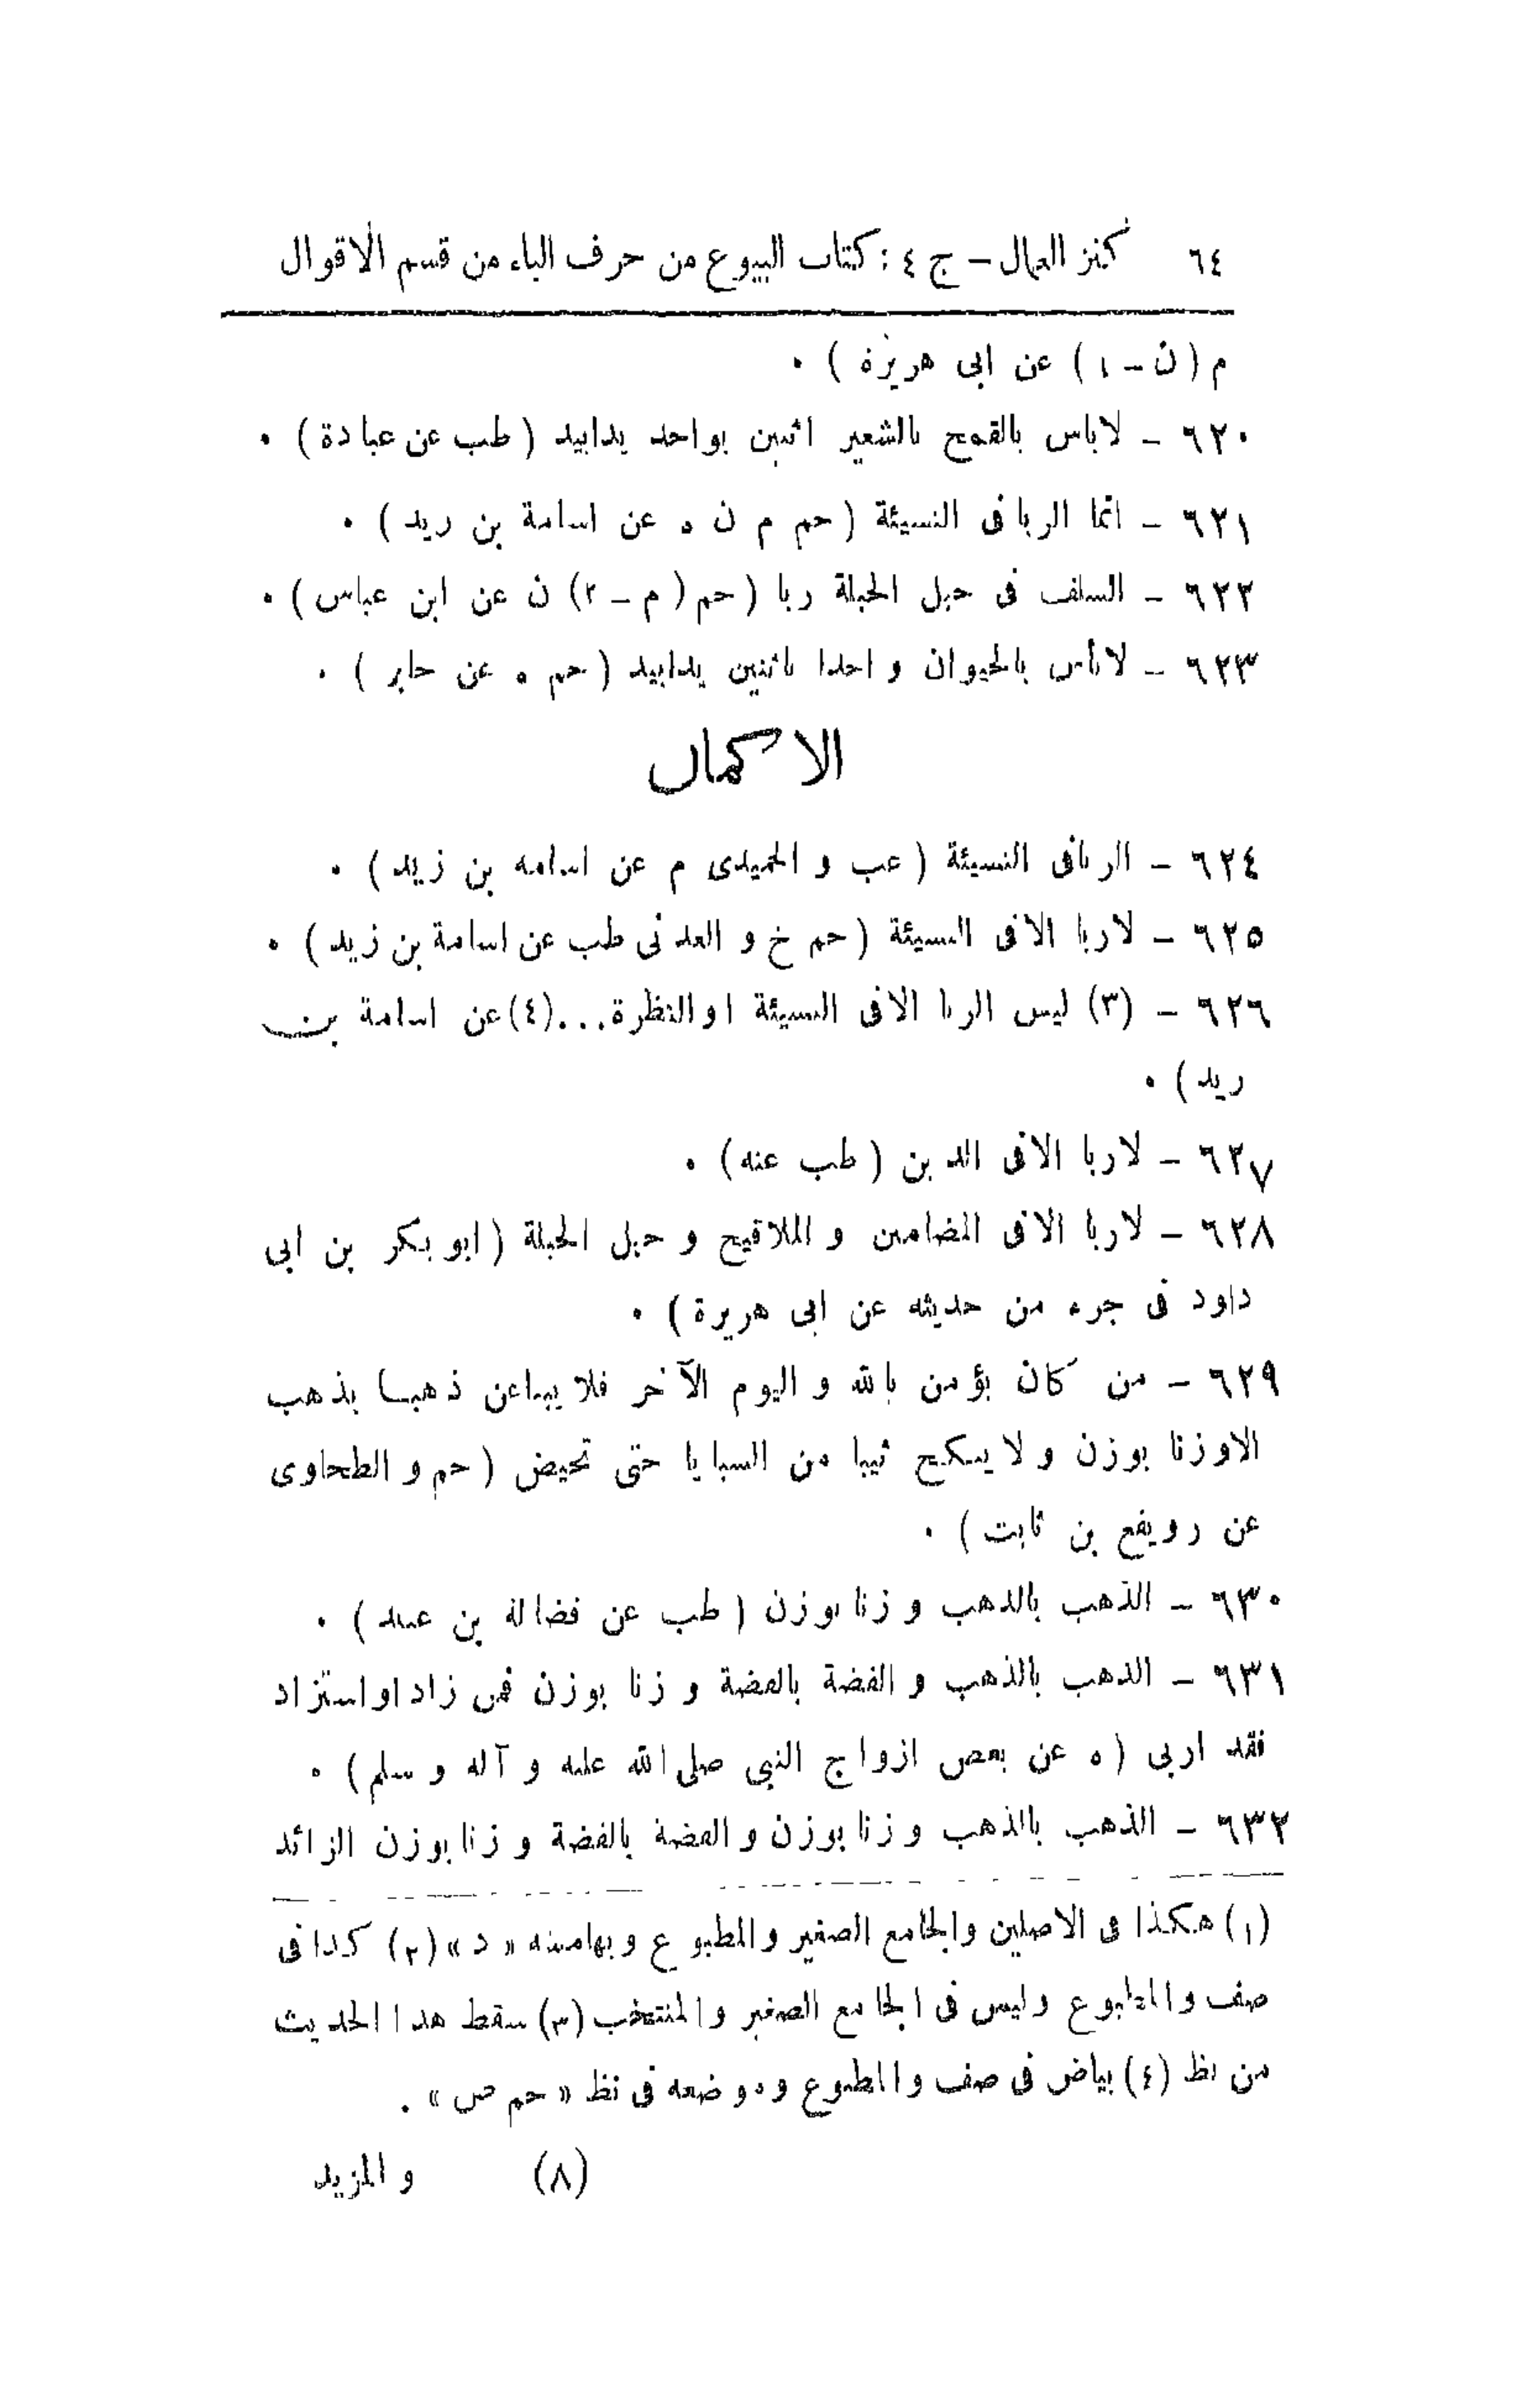 ٦٤ كنز العمال – ج ٤ : كتاب البيوع من حرف الباء من قسم الاقوال
م (ن – ١) عن ابى هريرة) .
٦٢٠ – لاباس بالقمح بالشعير اثنين بواحد يدابيد (طب عن عبادة) .
٦٢١ – انما الربا فى النسيئة (حم م ن ه عن اسامة بن زيد) .
٦٢٢ – السلف فى حبل الحبلة ربا (حم (م – ٢) ن عن ابن عباس) .
٦٢٣ – لابأس بالحيوان واحدا باثنين يدابيد (حم ه عن جابر) .
الاكمال
٦٢٤ – الربافى النسيئة (عب و الحميدى م عن اسامه بن زيد) .
٦٢٥ – لاربا الافى النسيئة (حم خ و العدنى طب عن اسامة بن زيد) .
٦٢٦ – (٣) ليس الربا الافى النسيئة اوالنظرة...(٤) عن اسامة بن
زيد) .
٦٢٧ – لاربا الافى الدين (طب عنه) .
٦٢٨ – لاربا الافى المضامين و الملاقيح و حبل الحبلة (ابو بكر بن ابى
داود فى جزء من حديثه عن ابى هريرة) .
٦٢٩ – من كان يؤمن بالله و اليوم الآخر فلا يباعن ذهبا بذهب
الاوزنا بوزن و لا ينكح ثيبا من السبايا حتى تحيض (حم و الطحاوى
عن رويفع بن ثابت) .
٦٣٠ – الذهب بالذهب وزنا بوزن (طب عن فضالة بن عبيد) .
٦٣١ – الذهب بالذهب و الفضة بالفضة وزنا بوزن فمن زاد او استزاد
فقد اربى (ه عن بعض ازواج النبى صلى الله عليه و آله و سلم) .
٦٣٢ – الذهب بالذهب وزنا بوزن و الفضة بالفضة وزنا بوزن الزائد
(١) هكذا فى الاصلين والجامع الصغير والمطبوع وبهامشه « د » (٢) كذا فى
صف والمطبوع وليس فى الجامع الصغير والمنتخب (٣) سقط هذا الحديث
من نظ (٤) بياض فى صف والمطبوع وموضعه فى نظ « حم ص » .
(٨) و المزيد